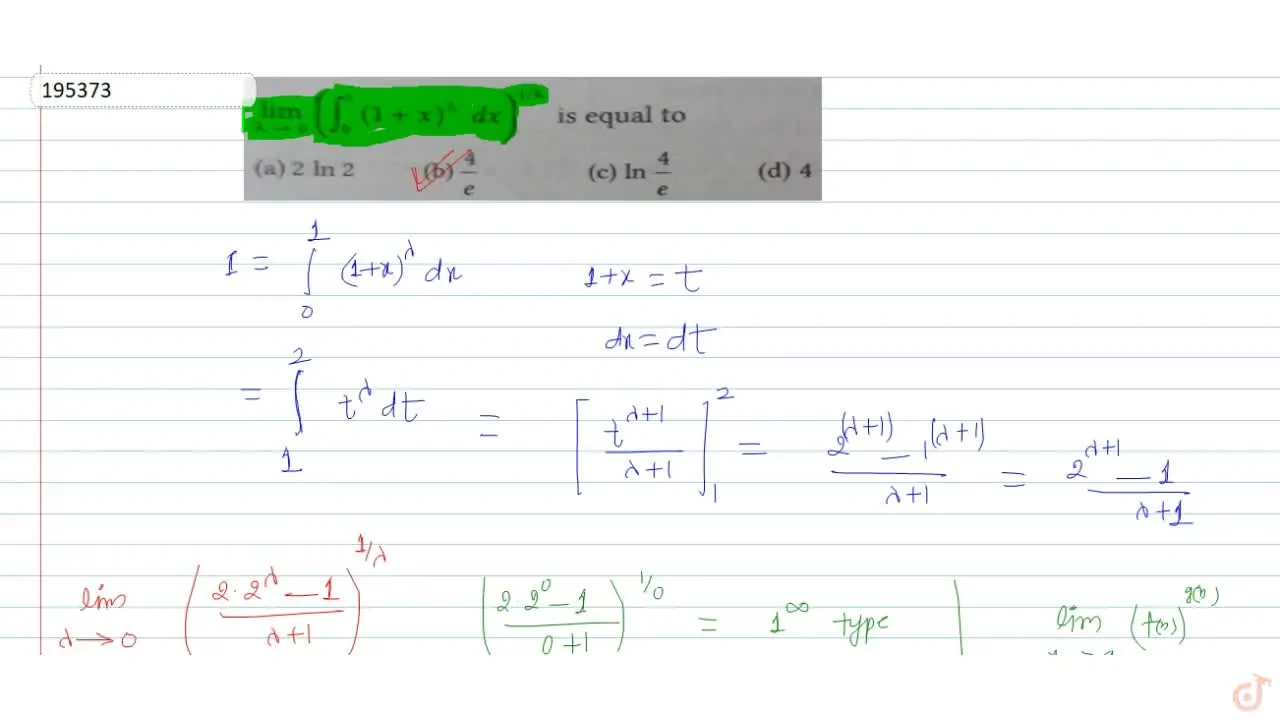 195373
lim λ → 0 (∫₀¹ (1 + x)^λ dx)^(1/λ) is equal to
(a) 2 ln 2 (b) 4/e (c) ln 4/e (d) 4
I = ∫₀¹ (1+x)^λ dx 1+x = t
dx = dt
= ∫₁² t^λ dt = [t^(λ+1)/(λ+1)]₁² = (2^(λ+1) − 1^(λ+1))/(λ+1) = (2^(λ+1) − 1)/(λ+1)
lim λ→0 ((2·2^λ − 1)/(λ+1))^(1/λ) ((2 2^0 − 1)/(0+1))^(1/0) = 1^∞ type | lim (f(x))^g(x)